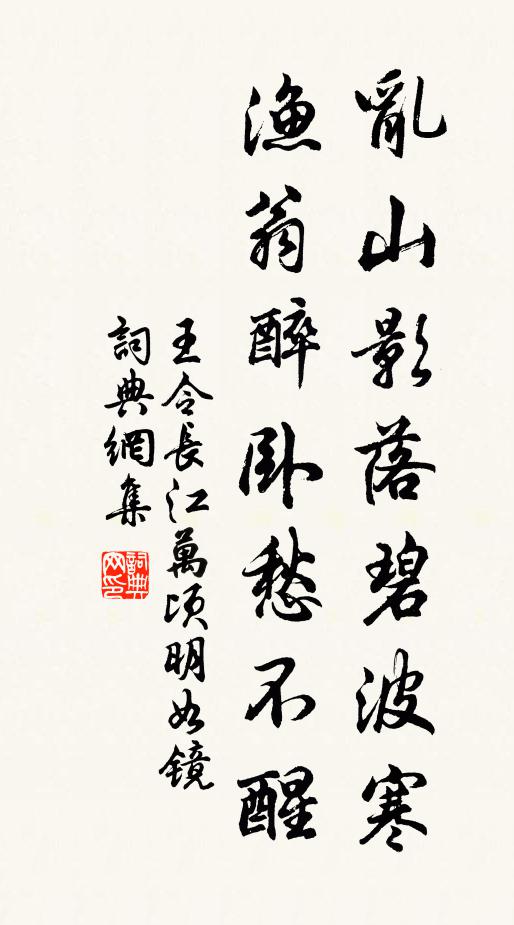 亂山影落碧波寒
漁翁醉卧愁不醒
王令長江萬頃明如鏡
詞典網集
詞典網印